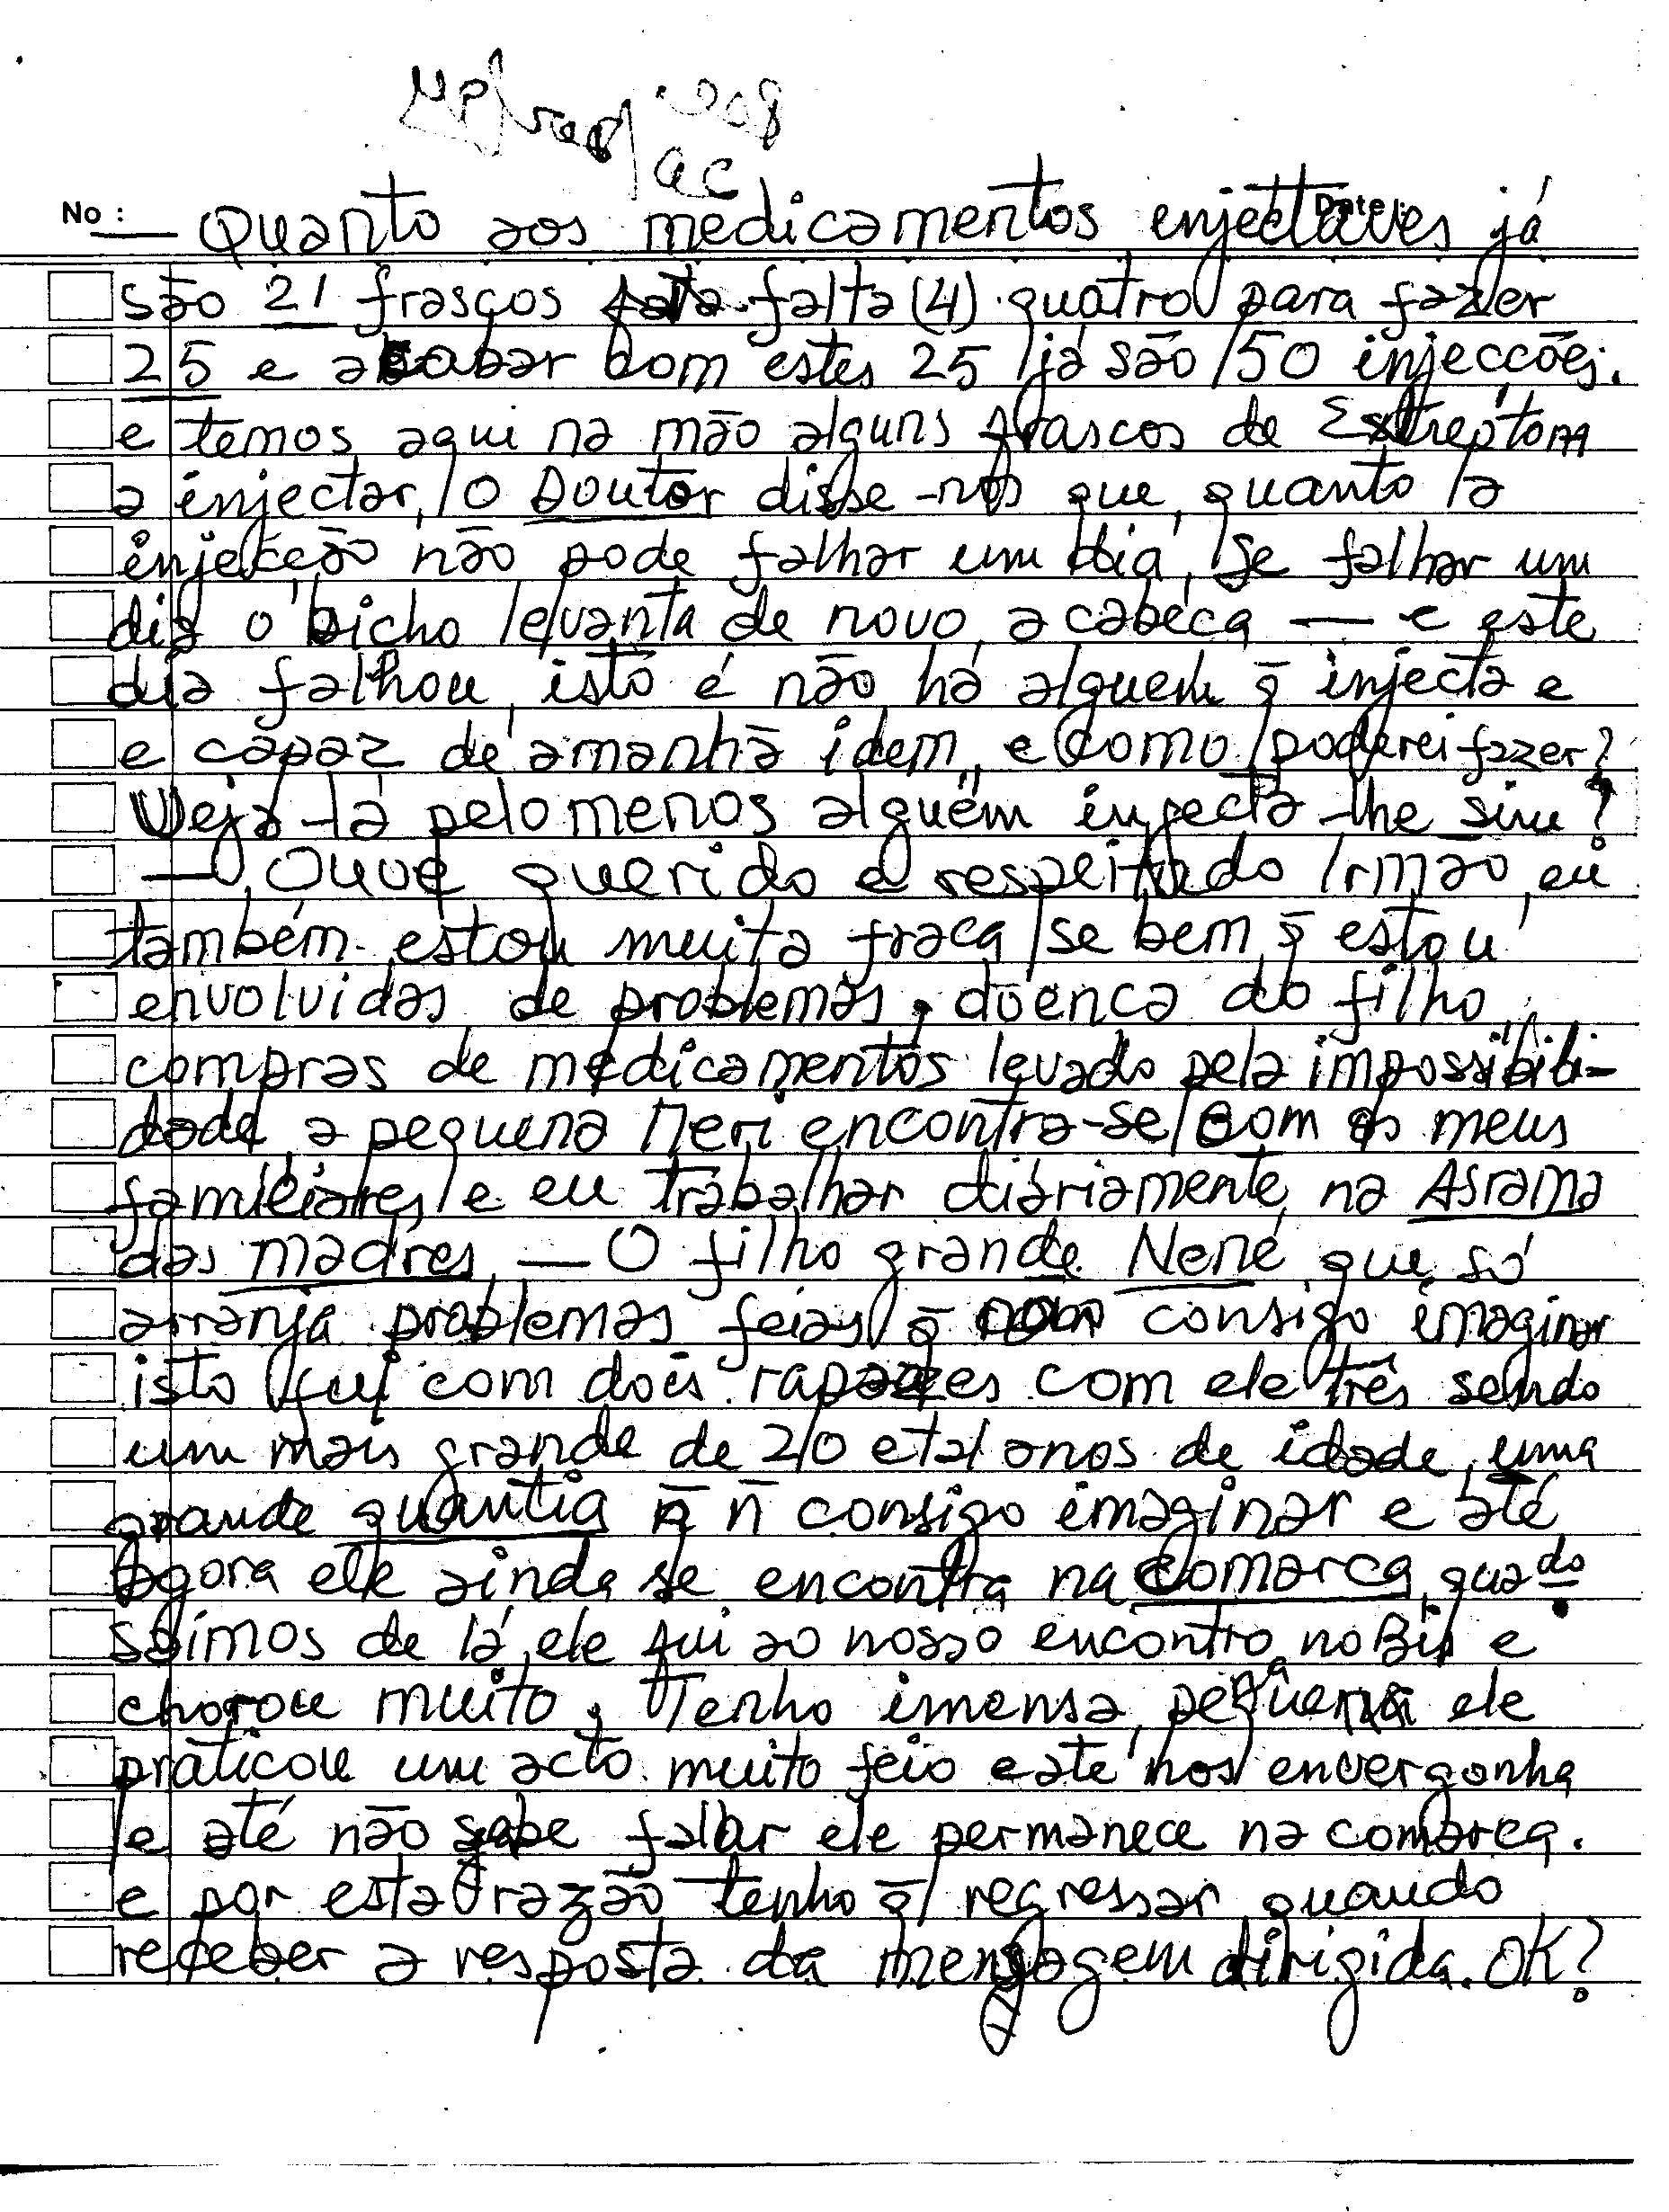 No : Date :
— Quanto aos medicamentos enjectáves já
são 21 frascos falta (4) quatro para fazer
25 e acabar com estes 25 já são 150 injeccões.
e temos aqui na mão alguns frascos de Extreptom
a injectar, o Doutor disse-nos que, quanto a
injeccão não pode falhar um dia, se falhar um
dia o bicho levanta de novo a cabéca — e este
dia falhou, isto é não há alguem q̄ injecta e
e capaz de amanhã idem, e como poderei fazer?
Veja-lá pelo menos alguém injecta-lhe sim?
— Ouve querido e respeitado Irmão, eu
também estou muita fraca se bem q̄ estou
envolvidas de problemas, doenca do filho
compras de medicamentos levado pela impossibili-
dade, a pequena Meri encontra-se com os meus
familiares e eu trabalhar diáriamente na Asrama
das madres — O filho grande Nené que só
arranja problemas feias q̄ não consigo imaginar
isto fui com dois rapazes com ele três sendo
um mais grande de 20 e tal anos de idade, uma
grande quantia q̄ ñ consigo imaginar e até
agora ele ainda se encontra na Comarca, quado
saímos de lá, ele fui ao nosso encontro no Bis e
chorou muito, Tenho imensa pena ele
praticou um acto muito feio e até nos envergonha
e até não sabe falar ele permanece na comarca.
e por esta razão tenho q̄ regressar quando
receber a resposta da mensagem dirigida. OK?